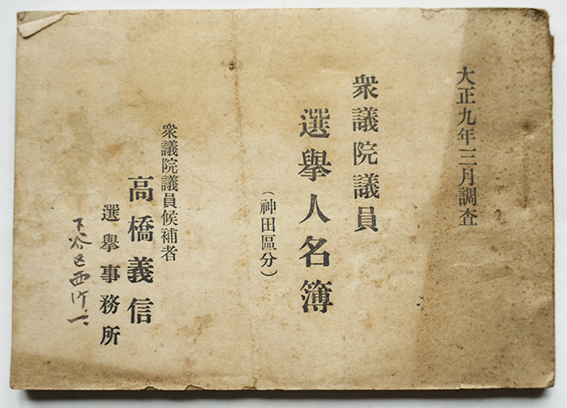 大正九年三月調査
衆議院議員
選擧人名簿
(神田區分)
衆議院議員候補者
高橋義信
選擧事務所
下谷区西町一